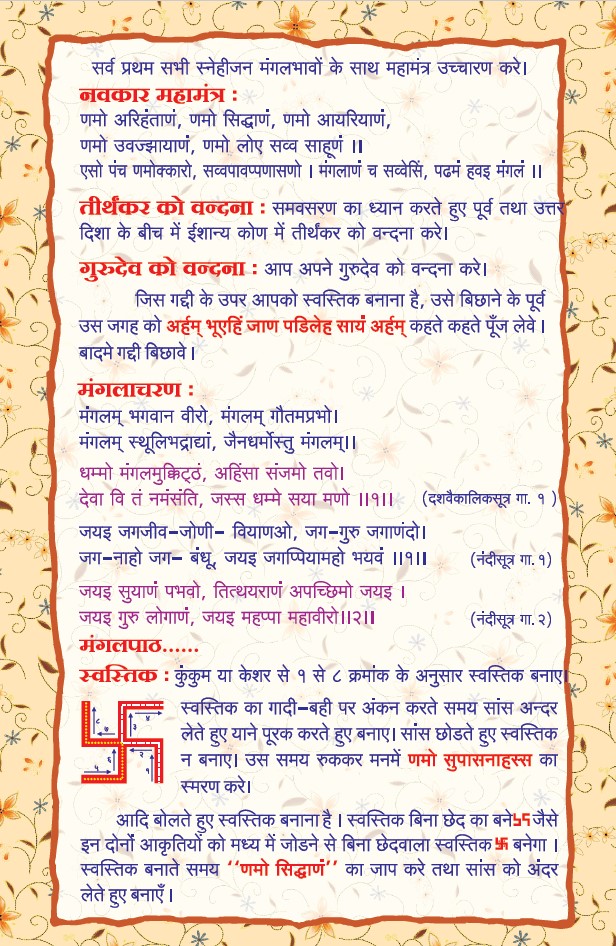 सर्व प्रथम सभी स्नेहीजन मंगलभावों के साथ महामंत्र उच्चारण करे।
नवकार महामंत्र :
णमो अरिहंताणं, णमो सिद्धाणं, णमो आयरियाणं,
णमो उवज्झायाणं, णमो लोए सव्व साहूणं ॥
एसो पंच णमोक्कारो, सव्वपावप्पणासणो । मंगलाणं च सव्वेसिं, पढमं हवइ मंगलं ॥
तीर्थंकर को वन्दना : समवसरण का ध्यान करते हुए पूर्व तथा उत्तर
दिशा के बीच में ईशान्य कोण में तीर्थंकर को वन्दना करे।
गुरुदेव को वन्दना : आप अपने गुरुदेव को वन्दना करे।
जिस गद्दी के उपर आपको स्वस्तिक बनाना है, उसे बिछाने के पूर्व
उस जगह को अर्हम् भूएहिं जाण पडिलेह सायं अर्हम् कहते कहते पूँज लेवे ।
बादमे गद्दी बिछावे ।
मंगलाचरण :
मंगलम् भगवान वीरो, मंगलम् गौतमप्रभो।
मंगलम् स्थूलिभद्राद्यां, जैनधर्मोस्तु मंगलम्।।
धम्मो मंगलमुक्किट्ठं, अहिंसा संजमो तवो।
देवा वि तं नमंसंति, जस्स धम्मे सया मणो ।।१।। (दशवैकालिकसूत्र गा. १ )
जयइ जगजीव-जोणी- वियाणओ, जग-गुरु जगाणंदो।
जग-नाहो जग- बंधू, जयइ जगप्पियामहो भयवं ।।१।। (नंदीसूत्र गा. १)
जयइ सुयाणं पभवो, तित्थयराणं अपच्छिमो जयइ ।
जयइ गुरु लोगाणं, जयइ महप्पा महावीरो।।२।। (नंदीसूत्र गा. २)
मंगलपाठ......
स्वस्तिक : कुंकुम या केशर से १ से ८ क्रमांक के अनुसार स्वस्तिक बनाए।
स्वस्तिक का गादी-बही पर अंकन करते समय सांस अन्दर
लेते हुए याने पूरक करते हुए बनाए। सांस छोडते हुए स्वस्तिक
न बनाए। उस समय रुककर मनमें णमो सुपासनाहस्स का
स्मरण करे।
८ ७ ३ ४
५ ६ २ १
आदि बोलते हुए स्वस्तिक बनाना है । स्वस्तिक बिना छेद का बने जैसे
इन दोनों आकृतियों को मध्य में जोडने से बिना छेदवाला स्वस्तिक 卐 बनेगा ।
स्वस्तिक बनाते समय ‘‘णमो सिद्धाणं’’ का जाप करे तथा सांस को अंदर
लेते हुए बनाएँ ।